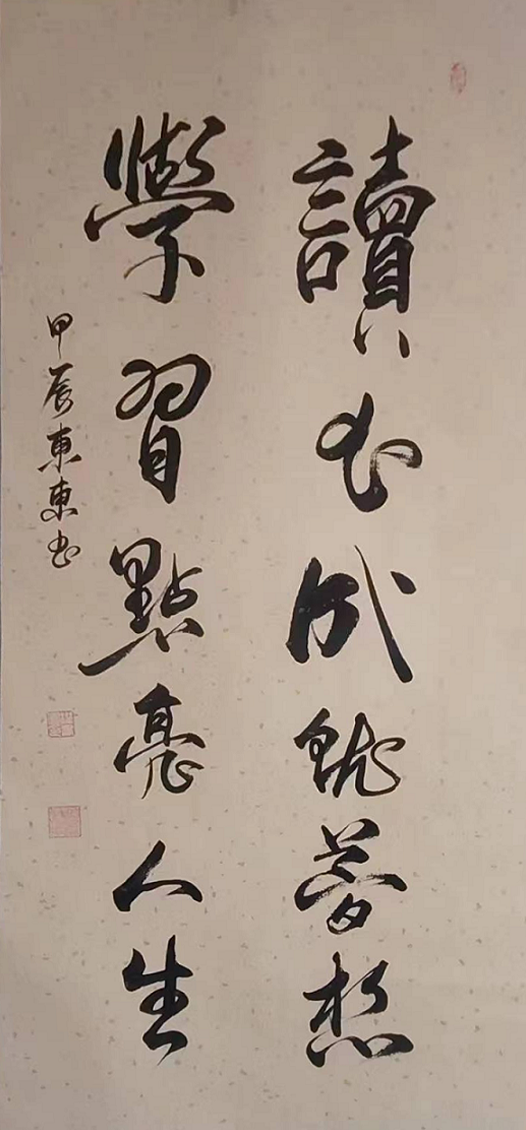 讀书成就夢想
學習點亮人生
甲辰東東书